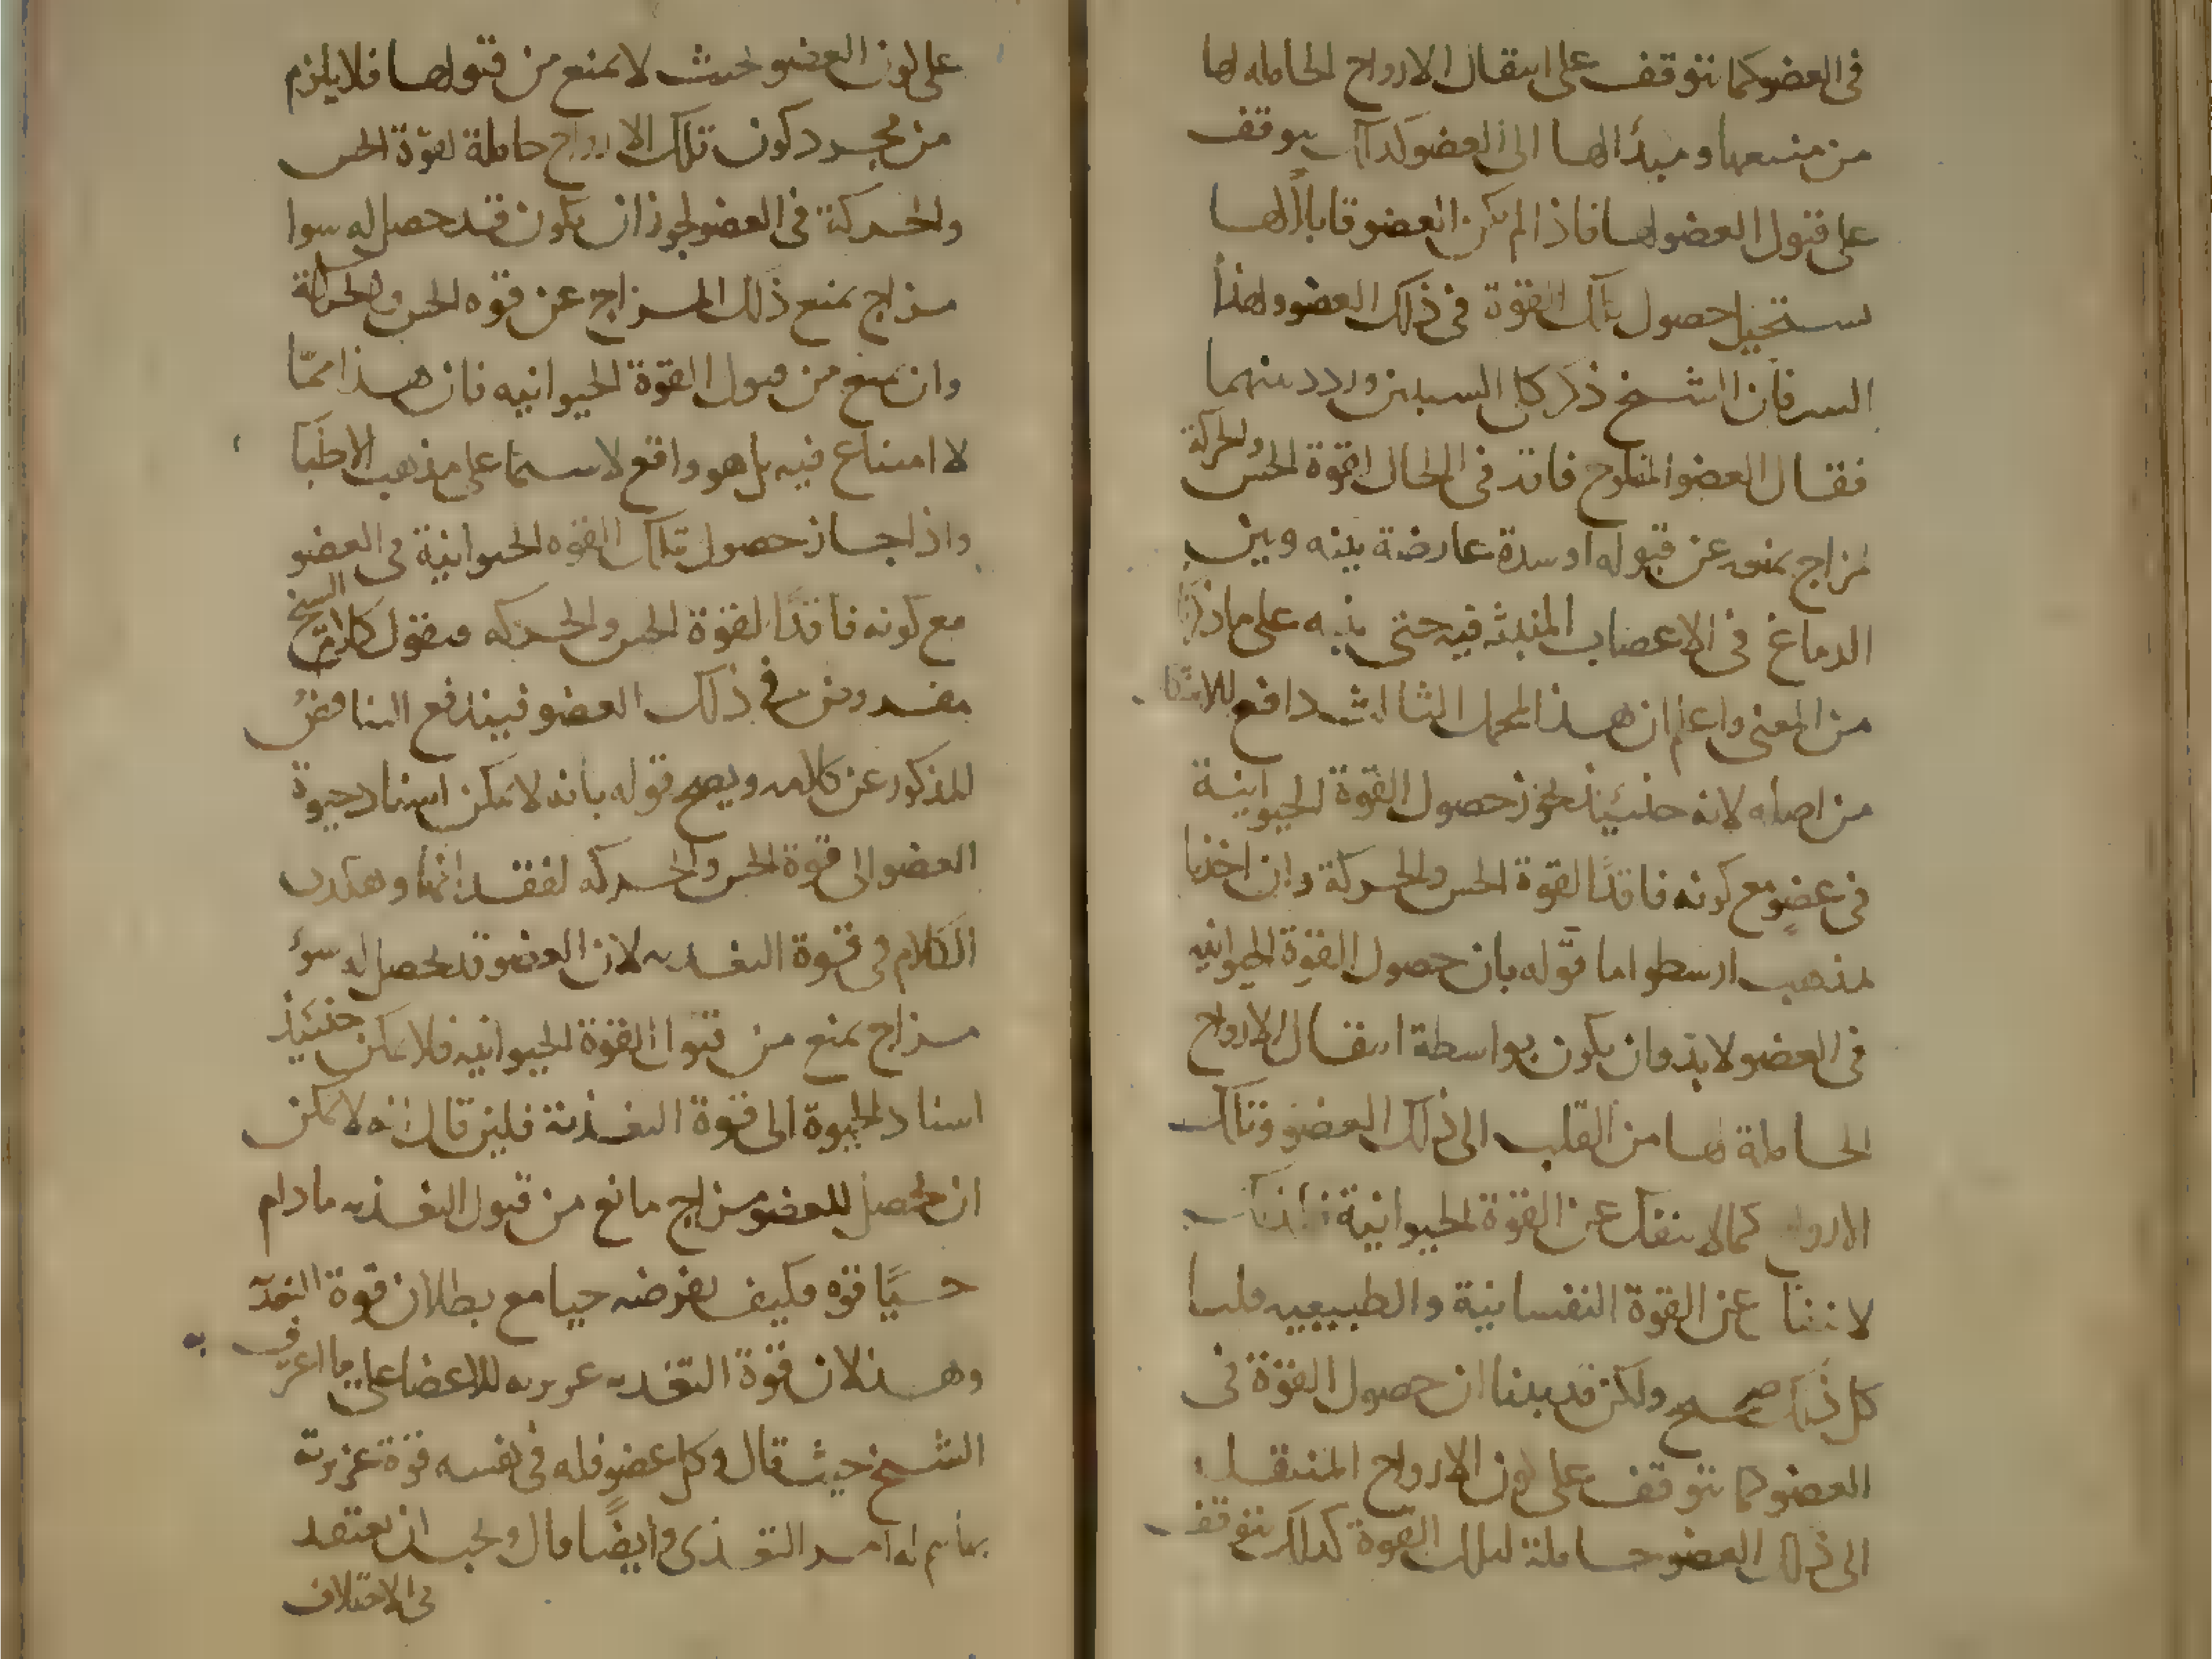 في العضو كما تتوقف على انتقال الارواح الحاملة لها
من منبعها ومبدأ لها الى العضو كذلك يتوقف
على قبول العضو لها فاذا لم يكن العضو قابلاً لها
يستحيل حصول تلك القوة في ذلك العضو ولهذا
السر فان الشيخ ذكر كل السببين وردد بينهما
فقال العضو المفلوج فاقد في الحال لقوة الحس والحركة
لمزاج يمنعه عن قبوله او سدة عارضة بينه وبين
الدماغ في الاعصاب المنبثه فيه حتى ينبه على ما ذكرنا
من المعنى واعلم ان هذا المحمل الثاني اشد دافع للاشكال
من اصله لانه حينئيذ يجوز حصول القوة الحيوانية
في عضوٍ مع كونه فاقدًا لقوة الحس والحركة وان اخذنا
مذهب ارسطو اما قوله بان حصول القوة الحيوانيه
في العضو لابد وان يكون بواسطة انتقال الارواح
الحاملة لها من القلب الى ذلك العضو وتلك
الارواح كما لا ينفك عن القوة الحيوانية فكذلك
لا عن القوة النفسانية والطبيعيه قلنا
كل ذلك صحيح ولكن قد بينا ان حصول القوة في
العضو كما تتوقف على كون الارواح المنتقلة
الى ذلك العضو حاملة لتلك القوة كذلك تتوقف
على كون العضو بحيث لا يمنع من قبولها فلا يلزم
من مجرد كون تلك الارواح حاملة لقوة الحس
والحركة في العضو لجواز ان يكون قد حصل له سوا
مزاج يمنع ذلك المزاج عن قوه الحس والحركة
وان منع من قبول القوة الحيوانيه فان هذا ممّا
لا امتناع فيه بل هو واقع لا سيما على مذهب الاطبا
واذا جاز حصول تلك القوه الحيوانية في العضو
مع كونه فاقدًا لقوة الحس والحركه فنقول كلام الشيخ
مفروض في ذلك العضو فيندفع التناقض
المذكور عن كلامه ويصح قوله بانه لا يمكن اسناد حيوة
العضو الى قوة الحس والحركه لفقدانها وهكذى
الكلام في قوة التغذيه لان العضو قد يحصل له سوٌ
مزاج يمنع من قبول القوة الحيوانيه فلا يمكن حينئيذ
اسناد الحيوة الى قوة التغذية فلين قال انه لا يمكن
ان يحصل للعضو مزاج مانع من قبول التغذيه ما دام
حيًا فكيف نفرضه حيا مع بطلان قوة التغذية
وهذا لان قوة التغذيه غريزيه للاعضا على ما اعرف به
الشيخ حيث قال وكل عضو فله في نفسه قوة غريزية
بها يتم له امر التغذى وايضًا قال ويجب ان يعتقد
في الاختلاف